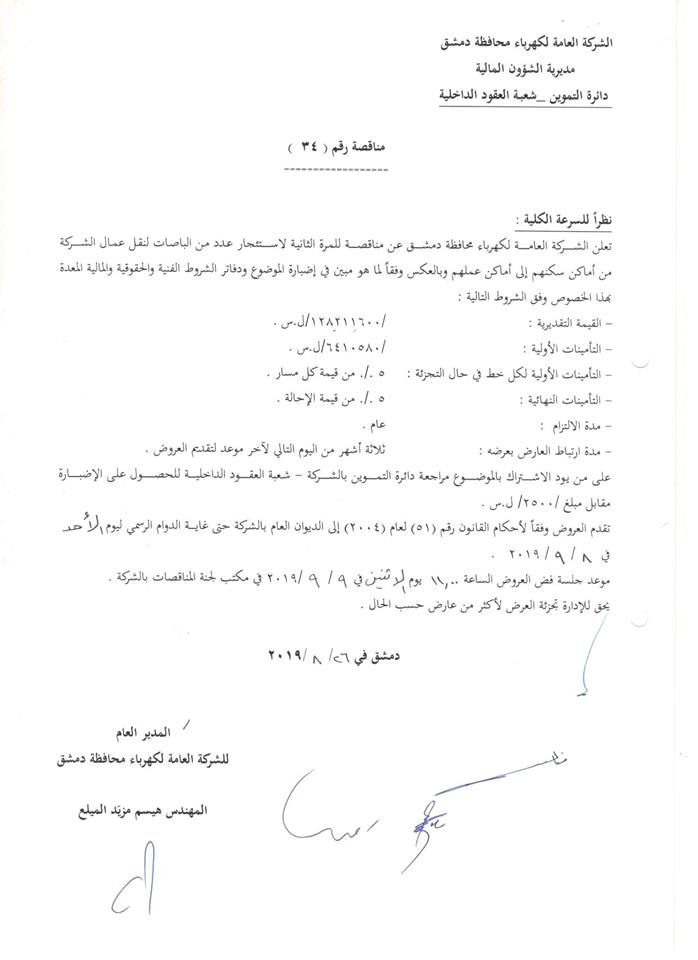 الشركة العامة لكهرباء محافظة دمشق
مديرية الشؤون المالية
دائرة التموين _ شعبة العقود الداخلية
مناقصة رقم ( ٣٤ )
-------------------
نظراً للسرعة الكلية :
تعلن الشركة العامة لكهرباء محافظة دمشق عن مناقصة للمرة الثانية لاستئجار عدد من الباصات لنقل عمال الشركة
من أماكن سكنهم إلى أماكن عملهم وبالعكس وفقاً لما هو مبين في إضبارة الموضوع ودفاتر الشروط الفنية والحقوقية والمالية المعدة
بهذا الخصوص وفق الشروط التالية :
– القيمة التقديرية : /١٢٨٢١١٦٠٠/ل.س .
– التأمينات الأولية : /٦٤١٠٥٨٠/ل.س .
– التأمينات الأولية لكل خط في حال التجزئة : ٥ ./. من قيمة كل مسار .
– التأمينات النهائية : ٥ ./. من قيمة الإحالة .
– مدة الالتزام : عام .
– مدة ارتباط العارض بعرضه : ثلاثة أشهر من اليوم التالي لآخر موعد لتقديم العروض .
على من يود الاشتراك بالموضوع مراجعة دائرة التموين بالشركة – شعبة العقود الداخلية للحصول على الإضبارة
مقابل مبلغ /٢٥٠٠/ ل.س .
تقدم العروض وفقاً لأحكام القانون رقم (٥١) لعام (٢٠٠٤) إلى الديوان العام بالشركة حتى غاية الدوام الرسمي ليوم الأحد
في ٨ / ٩ / ٢٠١٩ .
موعد جلسة فض العروض الساعة ١١,٠٠ يوم الاثنين في ٩ / ٩ /٢٠١٩ في مكتب لجنة المناقصات بالشركة .
يحق للإدارة تجزئة العرض لأكثر من عارض حسب الحال .
دمشق في ٢٦/ ٨ /٢٠١٩
المدير العام
للشركة العامة لكهرباء محافظة دمشق
المهندس هيسم مزيَد الميلع